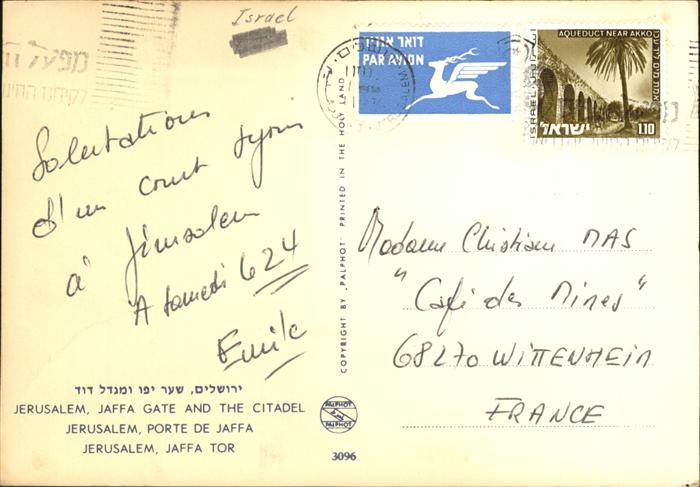 Israel
דואר אויר
PAR AVION
AQUEDUCT NEAR AKKO
ISRAEL
ישראל
1.10
JERUSALEM
מפעל
Salutations
d'un court
à Jérusalem
A Samedi 6 24
Emile
ירושלים, שער יפו ומגדל דוד
JERUSALEM, JAFFA GATE AND THE CITADEL
JERUSALEM, PORTE DE JAFFA
JERUSALEM, JAFFA TOR
COPYRIGHT BY „PALPHOT" PRINTED IN THE HOLY LAND
PALPHOT
PALPHOT
3096
Madame Christiane MAS
"Café des Mines"
68270 WITTENHEIM
FRANCE